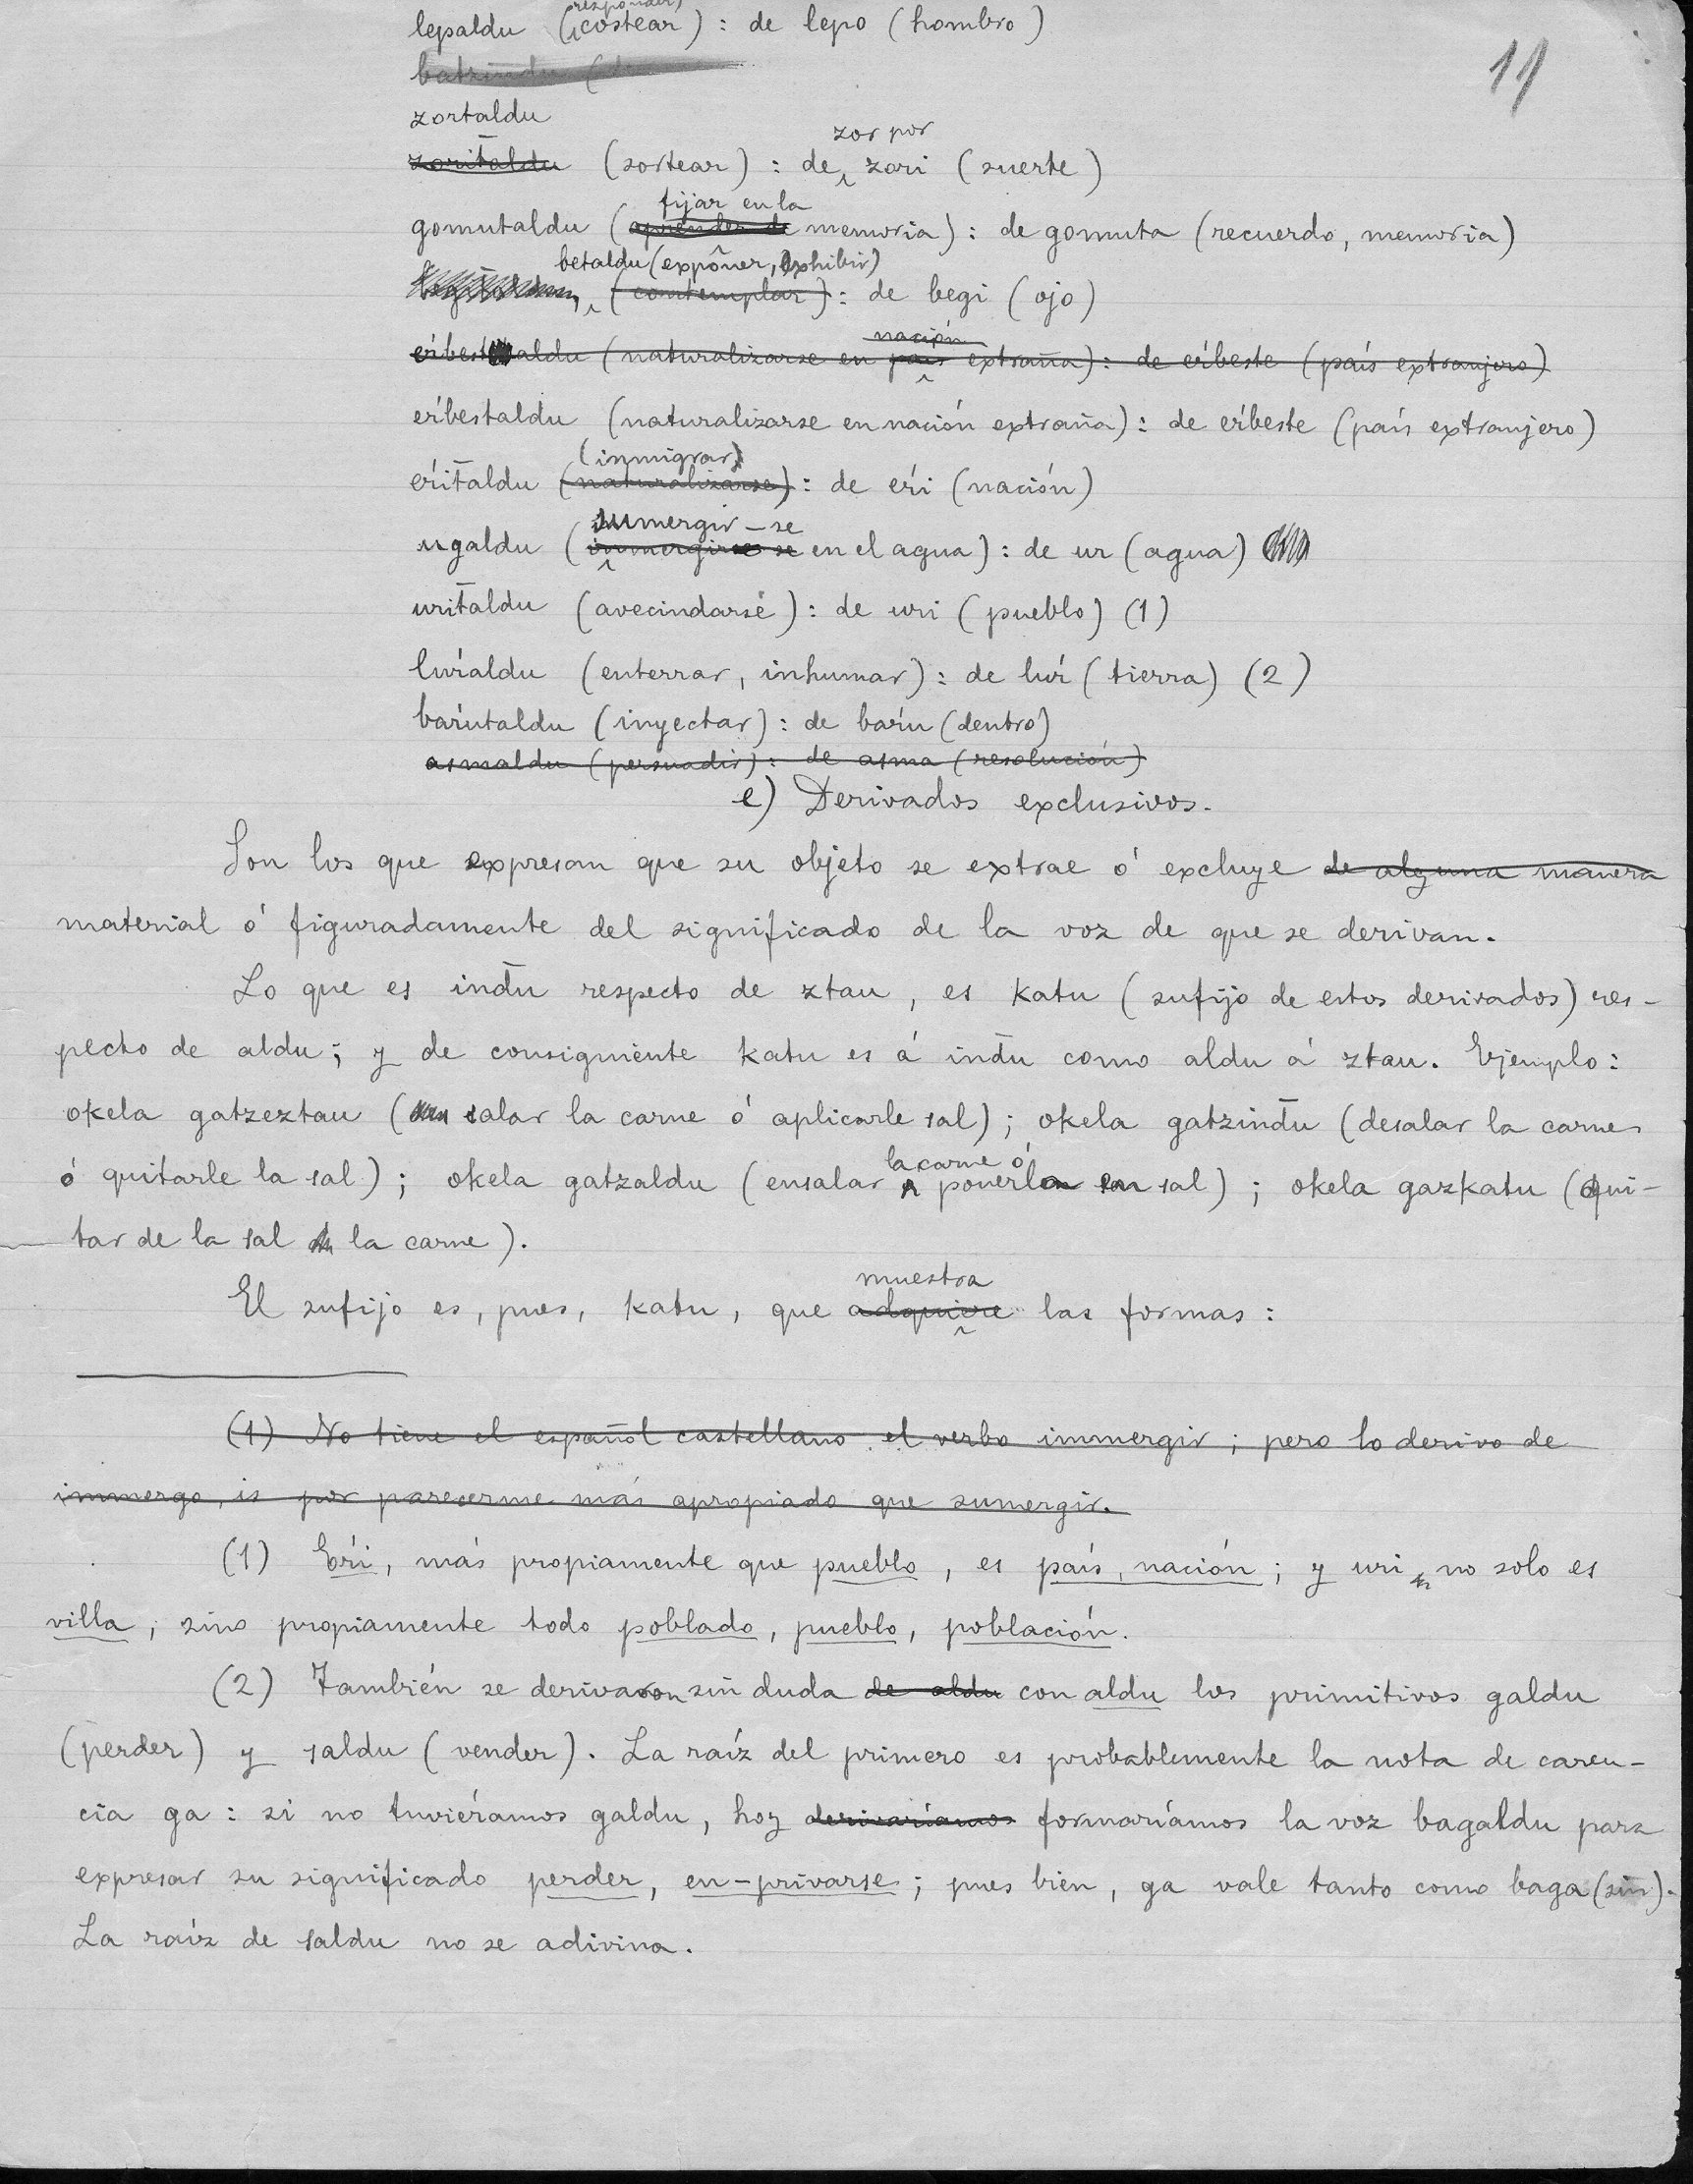 11
responder,
lepaldu (costear) : de lepo (hombro)
zortaldu
zor por
zoritaldu (sortear) : de zori (suerte)
fijar en la
gomutaldu (aprender de memoria) : de gomuta (recuerdo, memoria)
betaldu (exponer, exhibir)
(contemplar) : de begi (ojo)
nación
eŕbestaldu (naturalizarse en país extraña) : de eŕbeste (país extranjero)
eŕbestaldu (naturalizarse en nación extraña) : de eŕbeste (país extranjero)
(inmigrar)
eŕit̄aldu (naturalizarse) : de eŕi (nación)
sumergir-se
ugaldu (inmergirse en el agua) : de ur (agua)
urit̄aldu (avecindarse) : de uri (pueblo) (1)
luŕaldu (enterrar, inhumar) : de luŕ (tierra) (2)
baŕutaldu (inyectar) : de baŕu (dentro)
asmaldu (persuadir) : de asma (resolución)
e) Derivados exclusivos.
Son los que expresan que su objeto se extrae ó excluye de alguna manera
material ó figuradamente del significado de la voz de que se derivan.
Lo que es ind̄u respecto de ztau, es katu (sufijo de estos derivados) res-
pecto de aldu; y de consiguiente katu es á ind̄u como aldu á ztau. Ejemplo:
okela gatzeztau (salar la carne ó aplicarle sal); okela gatzind̄u (desalar la carne
ó quitarle la sal); okela gatzaldu (ensalar la carne ó ponerla en sal); okela gazkatu (qui-
tar de la sal la carne).
muestra
El sufijo es, pues, katu, que adquiere las formas:
(1) No tiene el español castellano el verbo immergir; pero lo derivo de
immergo, is por parecerme más apropiado que sumergir.
(1) Eŕi, más propiamente que pueblo, es país, nación; y uri no solo es
villa, sino propiamente todo poblado, pueblo, población.
(2) También se derivaron sin duda de aldu con aldu los primitivos galdu
(perder) y saldu (vender). La raíz del primero es probablemente la nota de caren-
cia ga: si no tuviéramos galdu, hoy derivaríamos formaríamos la voz bagaldu para
expresar su significado perder, en-privarse; pues bien, ga vale tanto como baga (sin).
La raíz de saldu no se adivina.